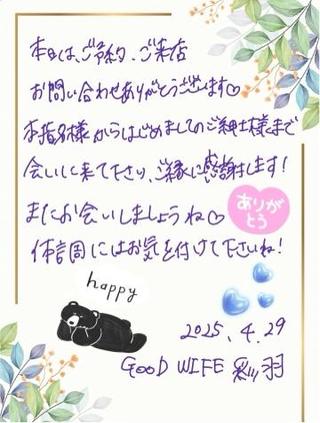 本日は、ご予約、ご来店
お問い合わせありがとうございます♡
本指名様からはじめましてのご紳士様まで
会いに来て下さり、ご縁に感謝します!
またお会いしましょうね♡
ありが
とう
体調にはお気を付けて下さいね!
happy
2025.4.29
GOOD WIFE 彩羽